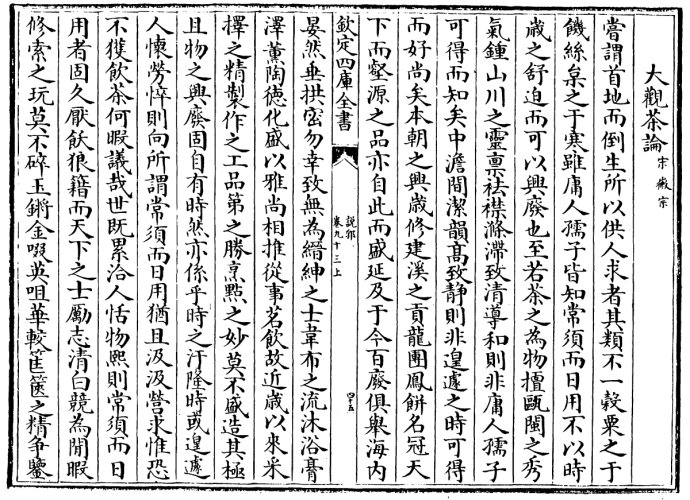 大觀茶論宋徽宗
嘗謂首地而倒生所以供人求者其類不一穀粟之于
饑絲枲之于寒雖庸人孺子皆知常須而日用不以時
歳之舒迫而可以興廢也至若茶之為物擅甌閩之秀
氣鍾山川之靈禀祛襟滌滯致清導和則非庸人孺子
可得而知矣中澹間潔韻髙致静則非遑遽之時可得
而好尚矣本朝之興歳修建溪之貢龍團鳳餅名冠天
下而壑源之品亦自此而盛延及于今百廢俱舉海内
欽定四庫全書
說郛
卷九十三上
四十五
晏然垂拱宻勿幸致無為縉紳之士韋布之流沐浴膏
澤薰陶德化盛以雅尚相推從事茗飲故近歳以來采
擇之精製作之工品第之勝烹點之妙莫不盛造其極
且物之興廢固自有時然亦係乎時之汙隆時或遑遽
人懐勞悴則向所謂常須而日用猶且汲汲營求惟恐
不獲飲茶何暇議哉世既累洽人恬物熙則常須而日
用者固久厭飫狼籍而天下之士勵志清白競為閒暇
修索之玩莫不碎玉鏘金啜英咀華較筐篋之精爭鑒